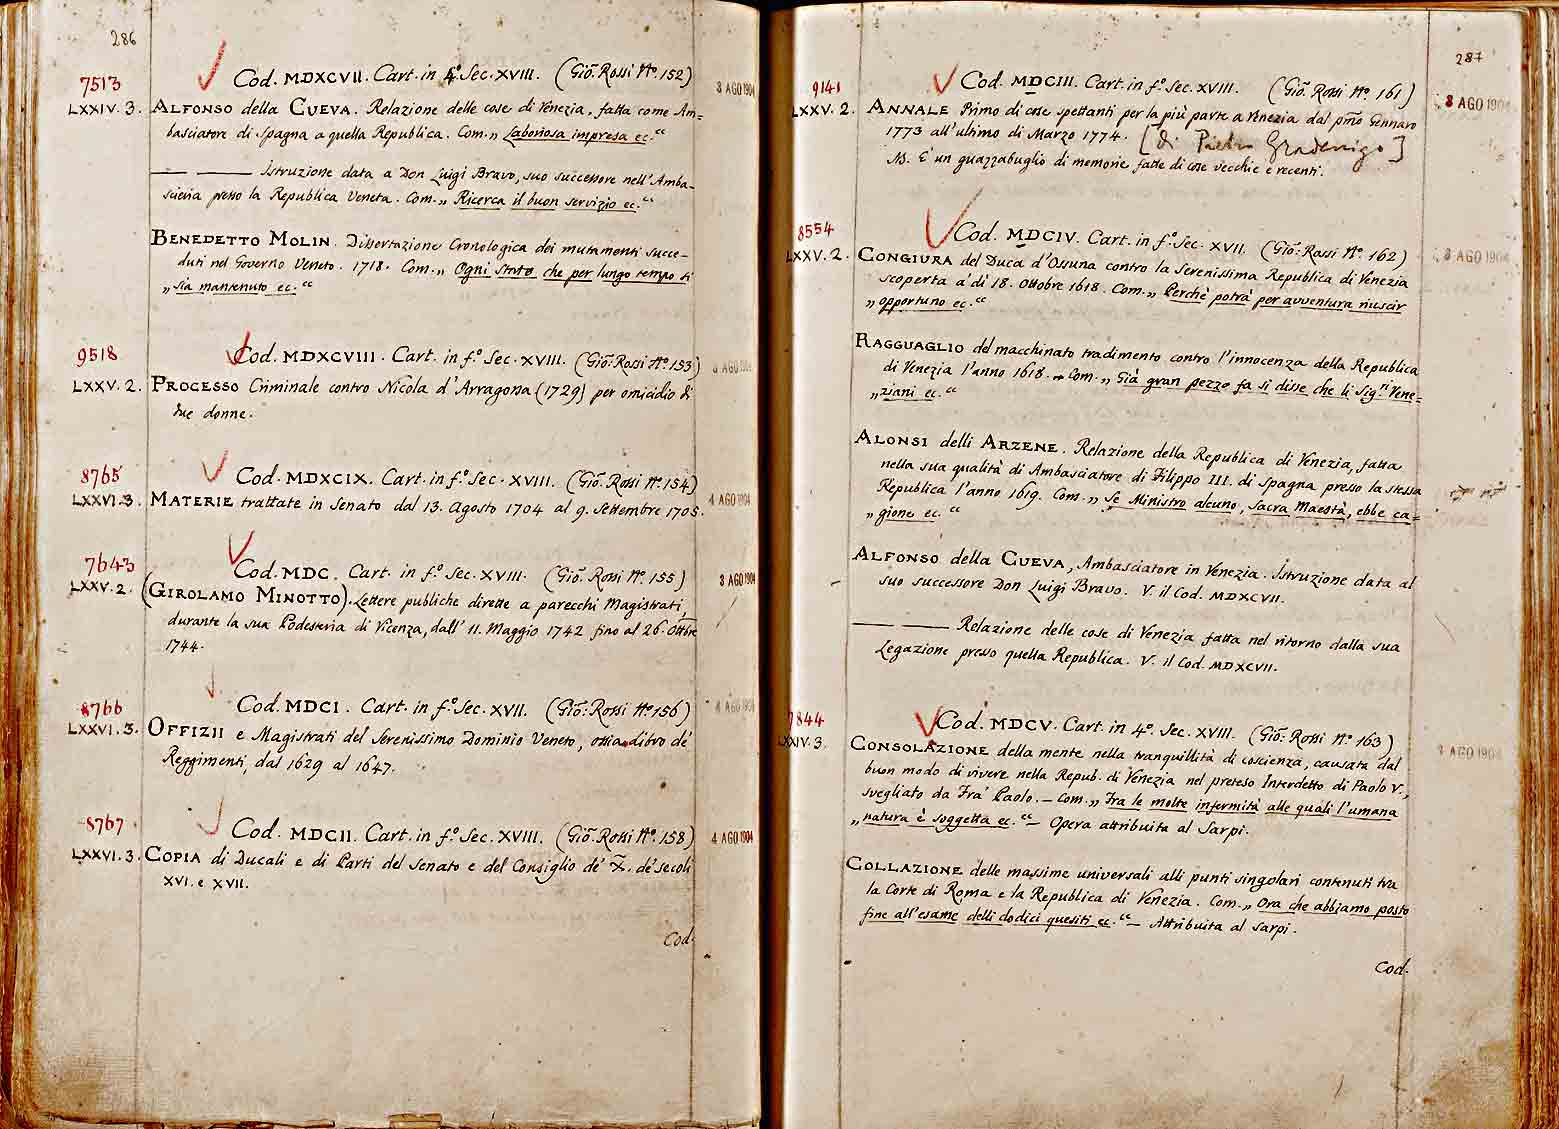 286
7513
Cod. MDXCVII. Cart. in 4º. Sec. XVIII. (Gio. Rossi Nº. 152)
3 AGO 1904
LXXIV. 3. ALFONSO della CUEVA. Relazione delle cose di Venezia, fatta come Am=
basciatore di Spagna a quella Republica. Com. „ Laboriosa impresa ec. “
— — Istruzione data a Don Luigi Bravo, suo successore nell'Amba-
sciería presso la Republica Veneta. Com. „ Ricerca il buon servizio ec. “
BENEDETTO MOLIN. Dissertazione Cronologica dei mutamenti succe-
duti nel Governo Veneto. 1718. Com. „ Ogni stato che per lungo tempo si
„ sia mantenuto ec. “
9518
Cod. MDXCVIII. Cart. in fº. Sec. XVIII. (Gio. Rossi Nº. 153)
3 AGO 1904
LXXV. 2. PROCESSO Criminale contro Nicola d'Arragona (1729) per omicidio di
due donne.
8765
Cod. MDXCIX. Cart. in fº. Sec. XVIII. (Gio. Rossi Nº. 154)
LXXVI. 3. MATERIE trattate in Senato dal 13. Agosto 1704 al 9. Settembre 1705.
4 AGO 1904
7643
Cod. MDC. Cart. in fº. Sec. XVIII. (Gio. Rossi Nº. 155)
3 AGO 1904
LXXV. 2. (GIROLAMO MINOTTO). Lettere publiche dirette a parecchi Magistrati,
durante la sua Podesteria di Vicenza, dall' 11. Maggio 1742 fino al 26. Ottbre
1744.
8766
Cod. MDCI. Cart. in fº. Sec. XVII. (Gio. Rossi Nº. 156)
4 AGO 1904
LXXVI. 3. OFFIZII e Magistrati del Serenissimo Dominio Veneto, ossia Libro de'
Reggimenti, dal 1629 al 1647.
8767
Cod. MDCII. Cart. in fº. Sec. XVIII. (Gio. Rossi Nº. 158)
4 AGO 1904
LXXVI. 3. COPIA di Ducali e di Parti del Senato e del Consiglio de' X. de' secoli
XVI. e XVII.
Cod.
287
9141
Cod. MDCIII. Cart. in fº. Sec. XVIII. (Gio. Rossi Nº. 161)
3 AGO 1904
LXXV. 2. ANNALE Primo di cose spettanti per la più parte a Venezia dal pmo Gennaro
1773 all'ultimo di Marzo 1774. [di Pietro Gradenigo]
NB. E' un guazzabuglio di memorie fatte di cose vecchie e recenti.
8554
Cod. MDCIV. Cart. in fº. Sec. XVII. (Gio. Rossi Nº. 162)
3 AGO 1904
LXXV. 2. CONGIURA del Duca d'Ossuna contro la Serenissima Republica di Venezia
scoperta a' dì 18. Ottobre 1618. Com. „ Perchè potrà per avventura riuscir
„ opportuno ec. “
RAGGUAGLIO del macchinato tradimento contro l'innocenza della Republica
di Venezia l'anno 1618. — Com. „ Già gran pezzo fa si disse che li Sigri Vene=
„ ziani ec. “
ALONSI delli ARZENE. Relazione della Republica di Venezia, fatta
nella sua qualità di Ambasciatore di Filippo III. di Spagna presso la stessa
Republica l'anno 1619. Com. „ Se Ministro alcuno, Sacra Maestà, ebbe ca=
„ gione ec. “
ALFONSO della CUEVA, Ambasciatore in Venezia. Istruzione data al
suo successore Don Luigi Bravo. V. il Cod. MDXCVII.
— — Relazione delle cose di Venezia fatta nel ritorno dalla sua
Legazione presso quella Republica. V. il Cod. MDXCVII.
7844
Cod. MDCV. Cart. in 4º. Sec. XVIII. (Gio. Rossi Nº. 163)
3 AGO 1904
LXXIV. 3. CONSOLAZIONE della mente nella tranquillità di coscienza, causata dal
buon modo di vivere nella Repub. di Venezia nel preteso Interdetto di Paolo V.,
svegliato da Fra' Paolo. — Com. „ Fra le molte infermità alle quali l'umana
„ natura è soggetta ec. “ — Opera attribuita al Sarpi.
COLLAZIONE delle massime universali alli punti singolari contenuti tra
la Corte di Roma e la Republica di Venezia. Com. „ Ora che abbiamo posto
fine all'esame delli dodici quesiti ec. “ — Attribuita al Sarpi.
Cod.